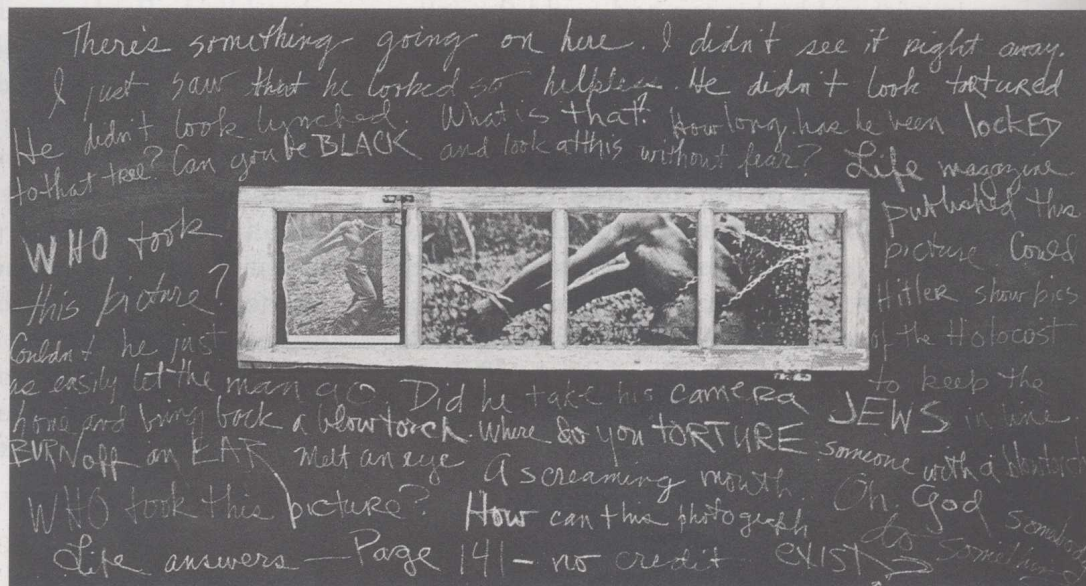 There's something going on here. I didn't see it right away.
I just saw that he looked so helpless. He didn't look tortured
He didn't look lynched. What is that? How long has he been locKED
to that tree? Can you be BLACK and look at this without fear? Life magazine
published this
picture Could
Hitler show pics
of the Holocost
to keep the
JEWS in line
WHO took
this picture?
Couldn't he just
as easily let the man go. Did he take his camera
home and bring back a blowtorch. Where do you TORTURE someone with a blowtorch
BURN off an EAR melt an eye A screaming mouth Oh, God
WHO took this picture? How can this photograph
EXIST
somebody
do something
Life answers — Page 141 — no credit